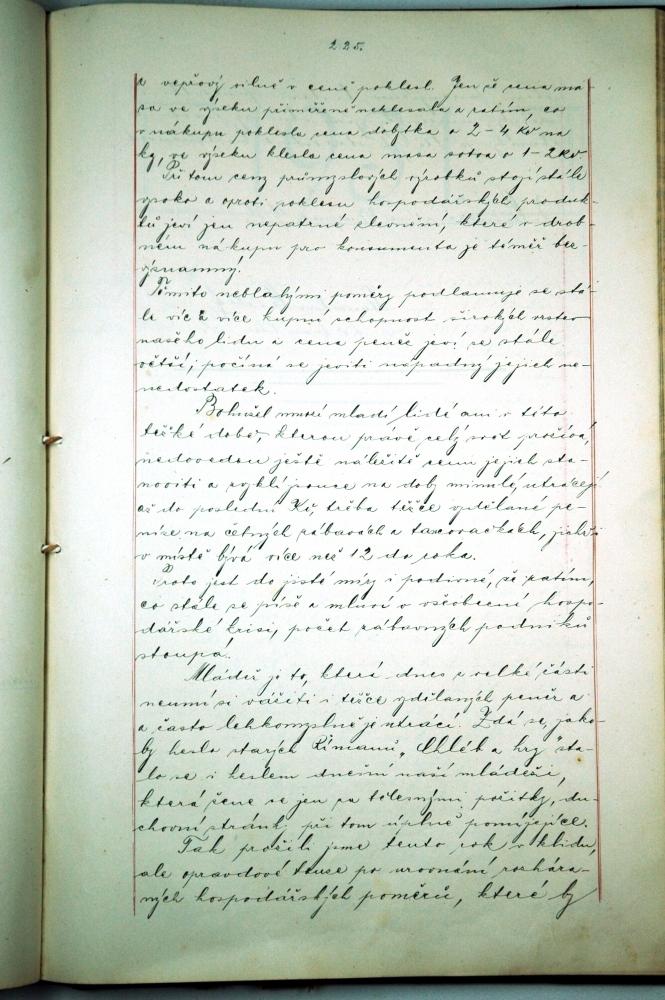 225.
a vepřový silně v ceně poklesl. Jen že cena ma-
sa ve výseku přiměřeně neklesala a zatím, co
v nákupu poklesla cena dobytka o 2–4 Kč na
kg, ve výseku klesla cena masa sotva o 1–2 Kč
Při tom ceny průmyslových výrobků stojí stále
vysoko a oproti poklesu hospodářských produk-
tů jeví jen nepatrné slevnění, které v drob-
ném nákupu pro konsumenta je téměř bez-
významný.
Těmito neblahými poměry podlamuje se stá-
le více a více kupní schopnost širokých vrstev
našeho lidu a cena peněz jeví se stále
větší; počíná se jeviti nápadný jejich ne-
nedostatek.
Bohužel mnozí mladí lidé ani v této
těžké době, kterou právě celý svět prožívá,
nedovedou ještě náležitě cenu jejich sta-
noviti a zvyklí pouze na doby minulé, utrácejí
až do poslední Kč, třeba těžce vydělané pe-
níze na četných zábavách a tancovačkách, jichž
v místě bývá více než 12 do roka.
Proto jest do jisté míry i podivné, že zatím,
co stále se píše a mluví o všeobecné hospo-
dářské krisi, počet zábavných podniků
stoupá.
Mládež je to, která dnes z velké části
neumí si vážiti i těžce vydělaných peněz a
a často lehkomyslně je utrácí. Zdá se, jako-
by heslo starých Římanů „Chléb a hry" sta-
lo se i heslem dnešní naší mládeže,
která žene se jen za tělesnými požitky, du-
chovní stránky při tom úplně pomíjejíce.
Tak prožili jsme tento rok v klidu,
ale opravdové touze po urovnání rozhára-
ných hospodářských poměrů, které by